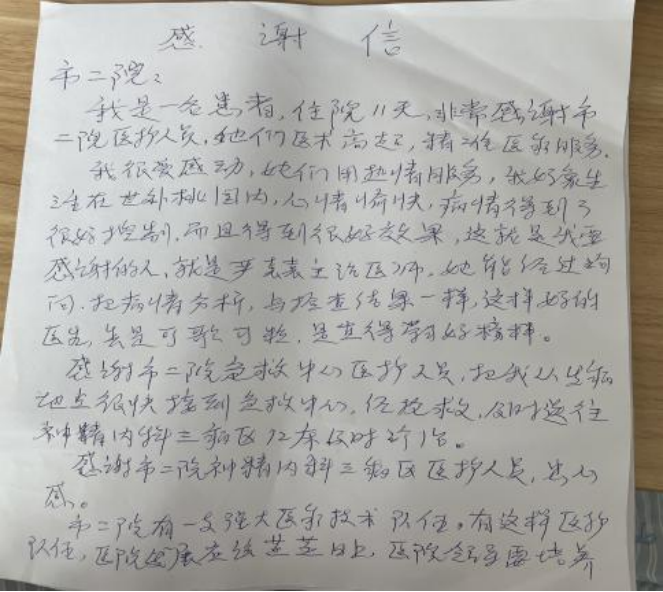 感 谢 信
市二院：
我是一名患者，住院11天，非常感谢市
二院医护人员，她们医术高超，精准医疗服务。
我很受感动，她们用热情服务，我好象生
活在世外桃园内，心情愉快，病情得到了
很好控制，而且得到很好效果，这就是我要
感谢的人，就是尹素素主治医师，她能经过询
问，把病情分析，与检查结果一样，这样好的
医生，是可歌可，是值得学习好榜样。
感谢市二院急救中心医护人员，把我从生病
地点很快接到急救中心，经抢救，及时送往
神精内科三病区12床及时治。
感谢市二院神精内科三病区医护人员，
感。
市二院有一支强大医疗技术队伍，有这样医护
队伍，医院发展应该蒸蒸日上，医院领导要培养